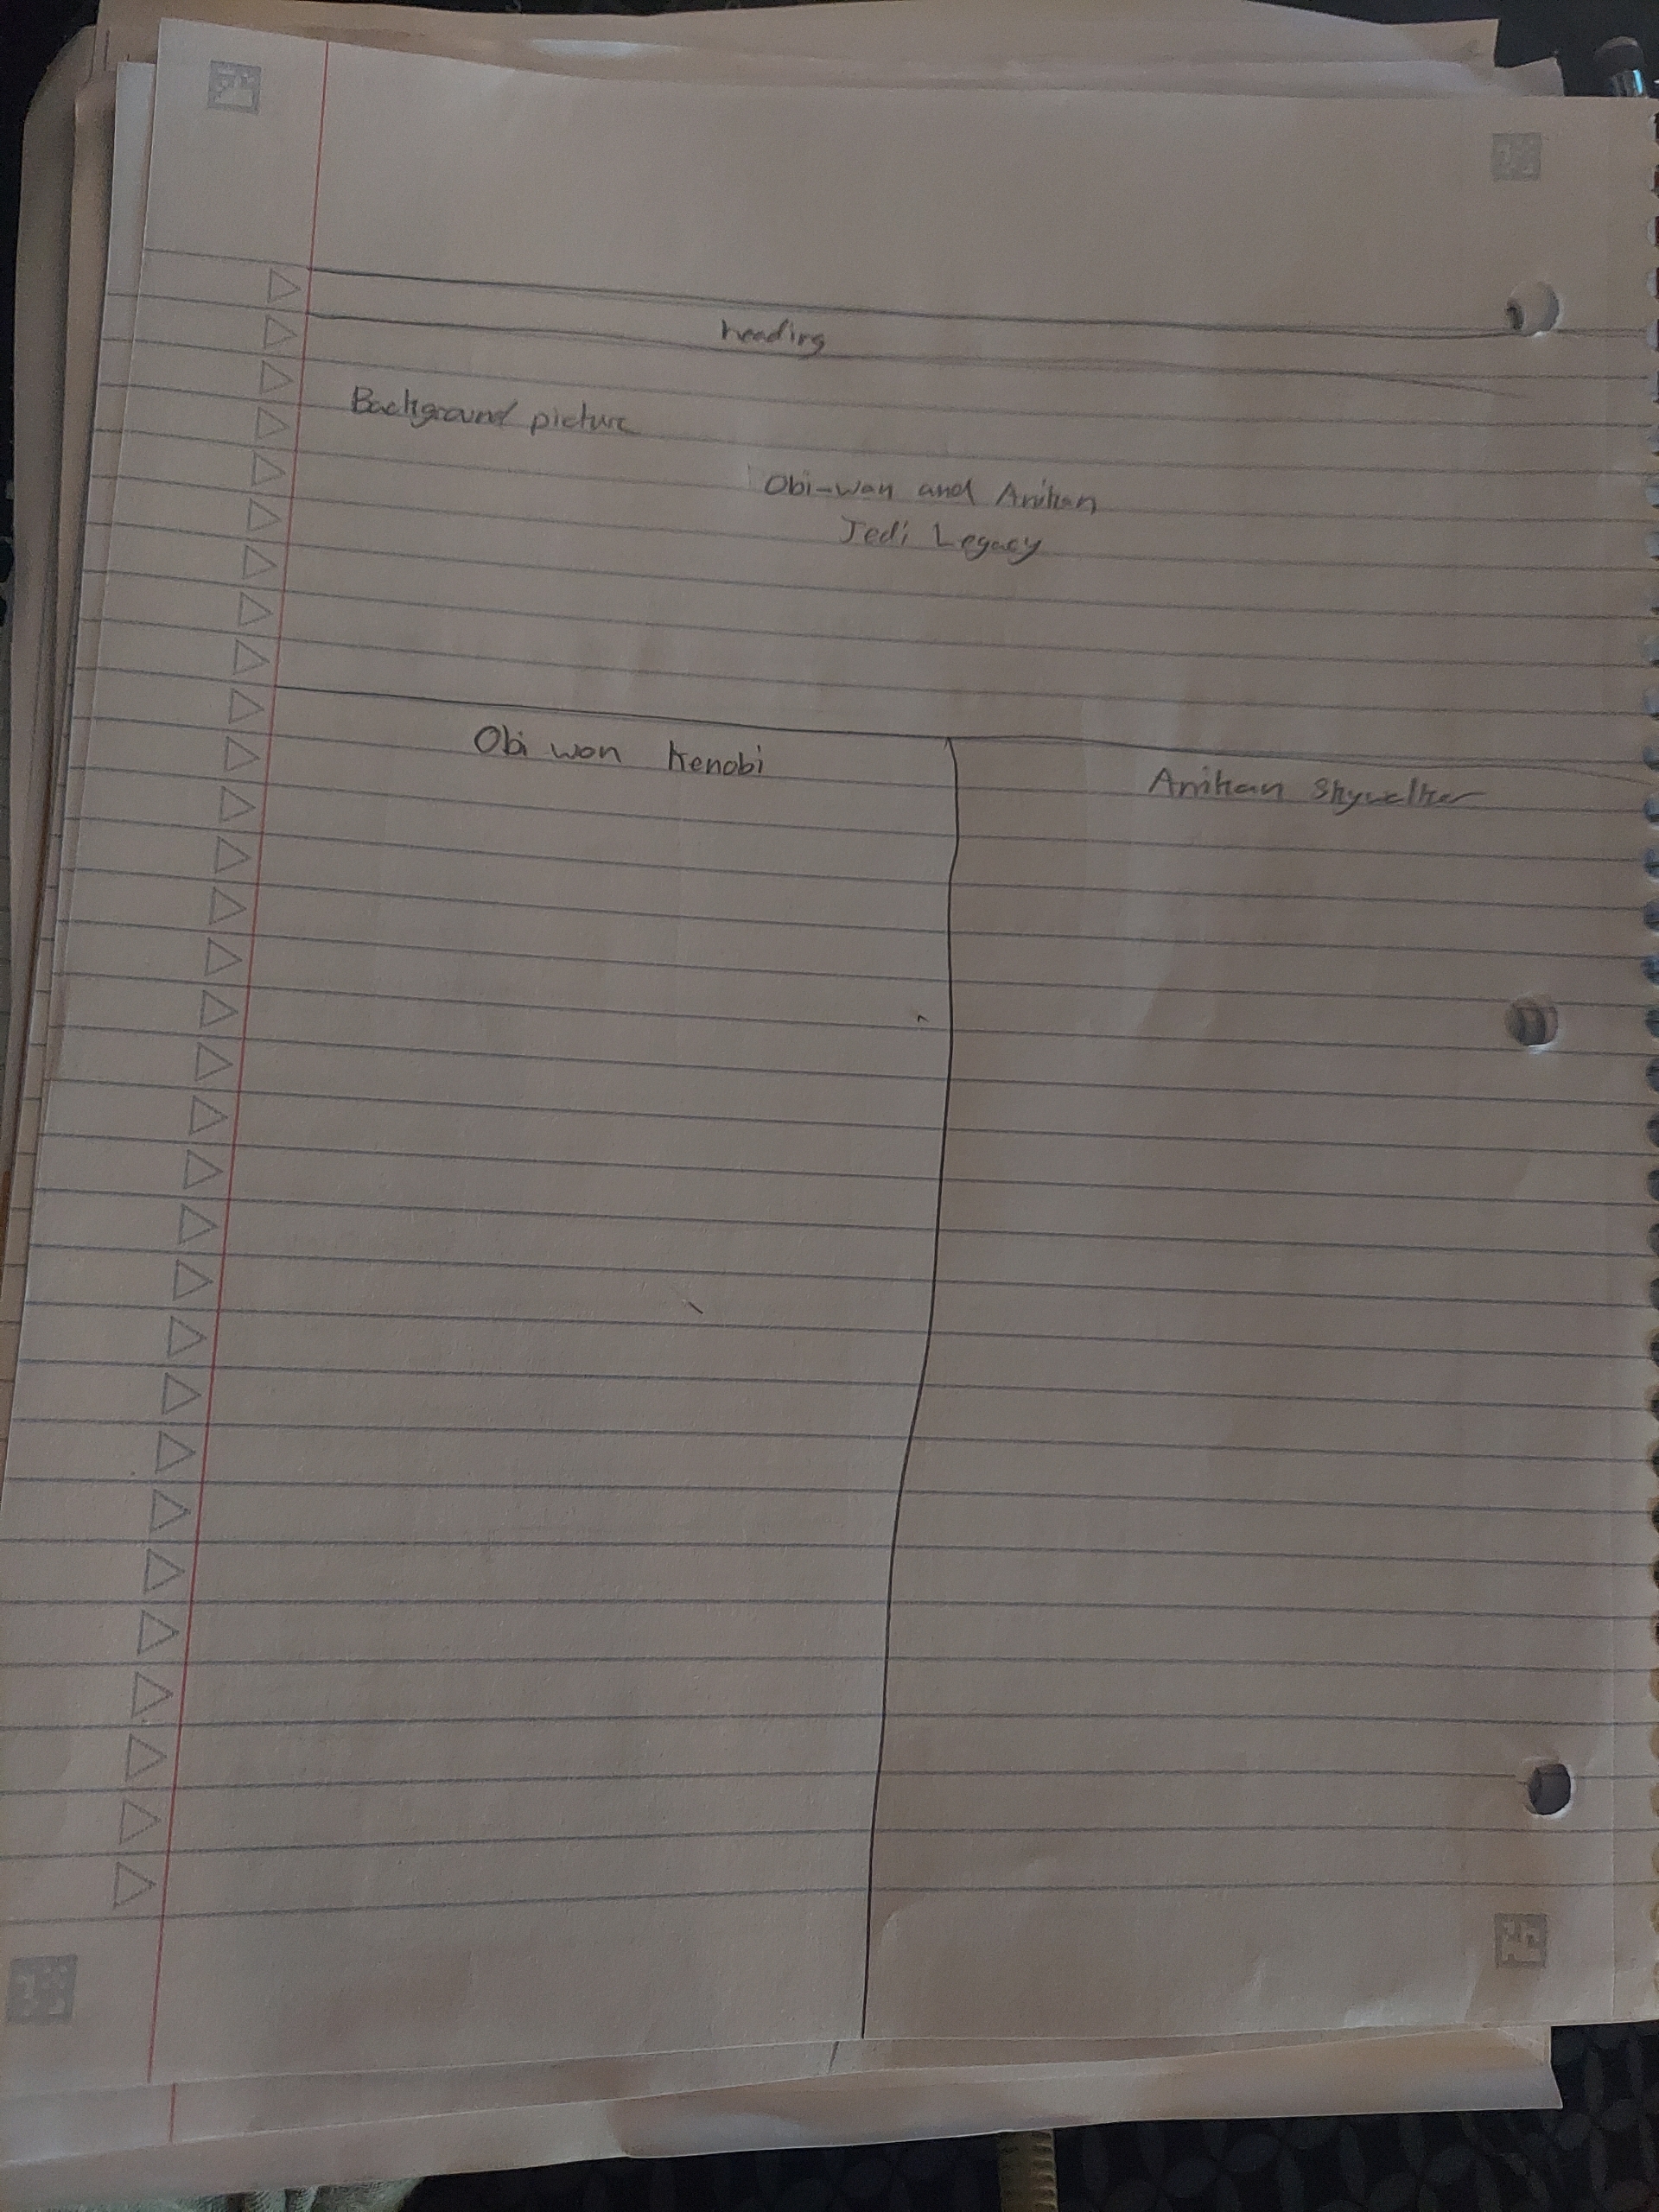 heading
Background picture
Obi-wan and Anikan
Jedi Legacy
Obi wan Kenobi
Anikan Skywalker